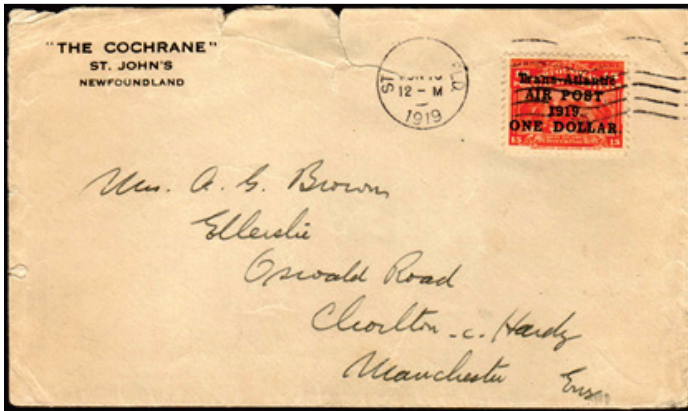 "THE COCHRANE"
ST. JOHN'S
NEWFOUNDLAND
ST
12 - M
1919
Trans-Atlantic
AIR POST
1919
ONE DOLLAR.
15 15
Mrs. A. G. Brown
Ellerslie
Oswald Road
Chorlton-c-Hardy
Manchester